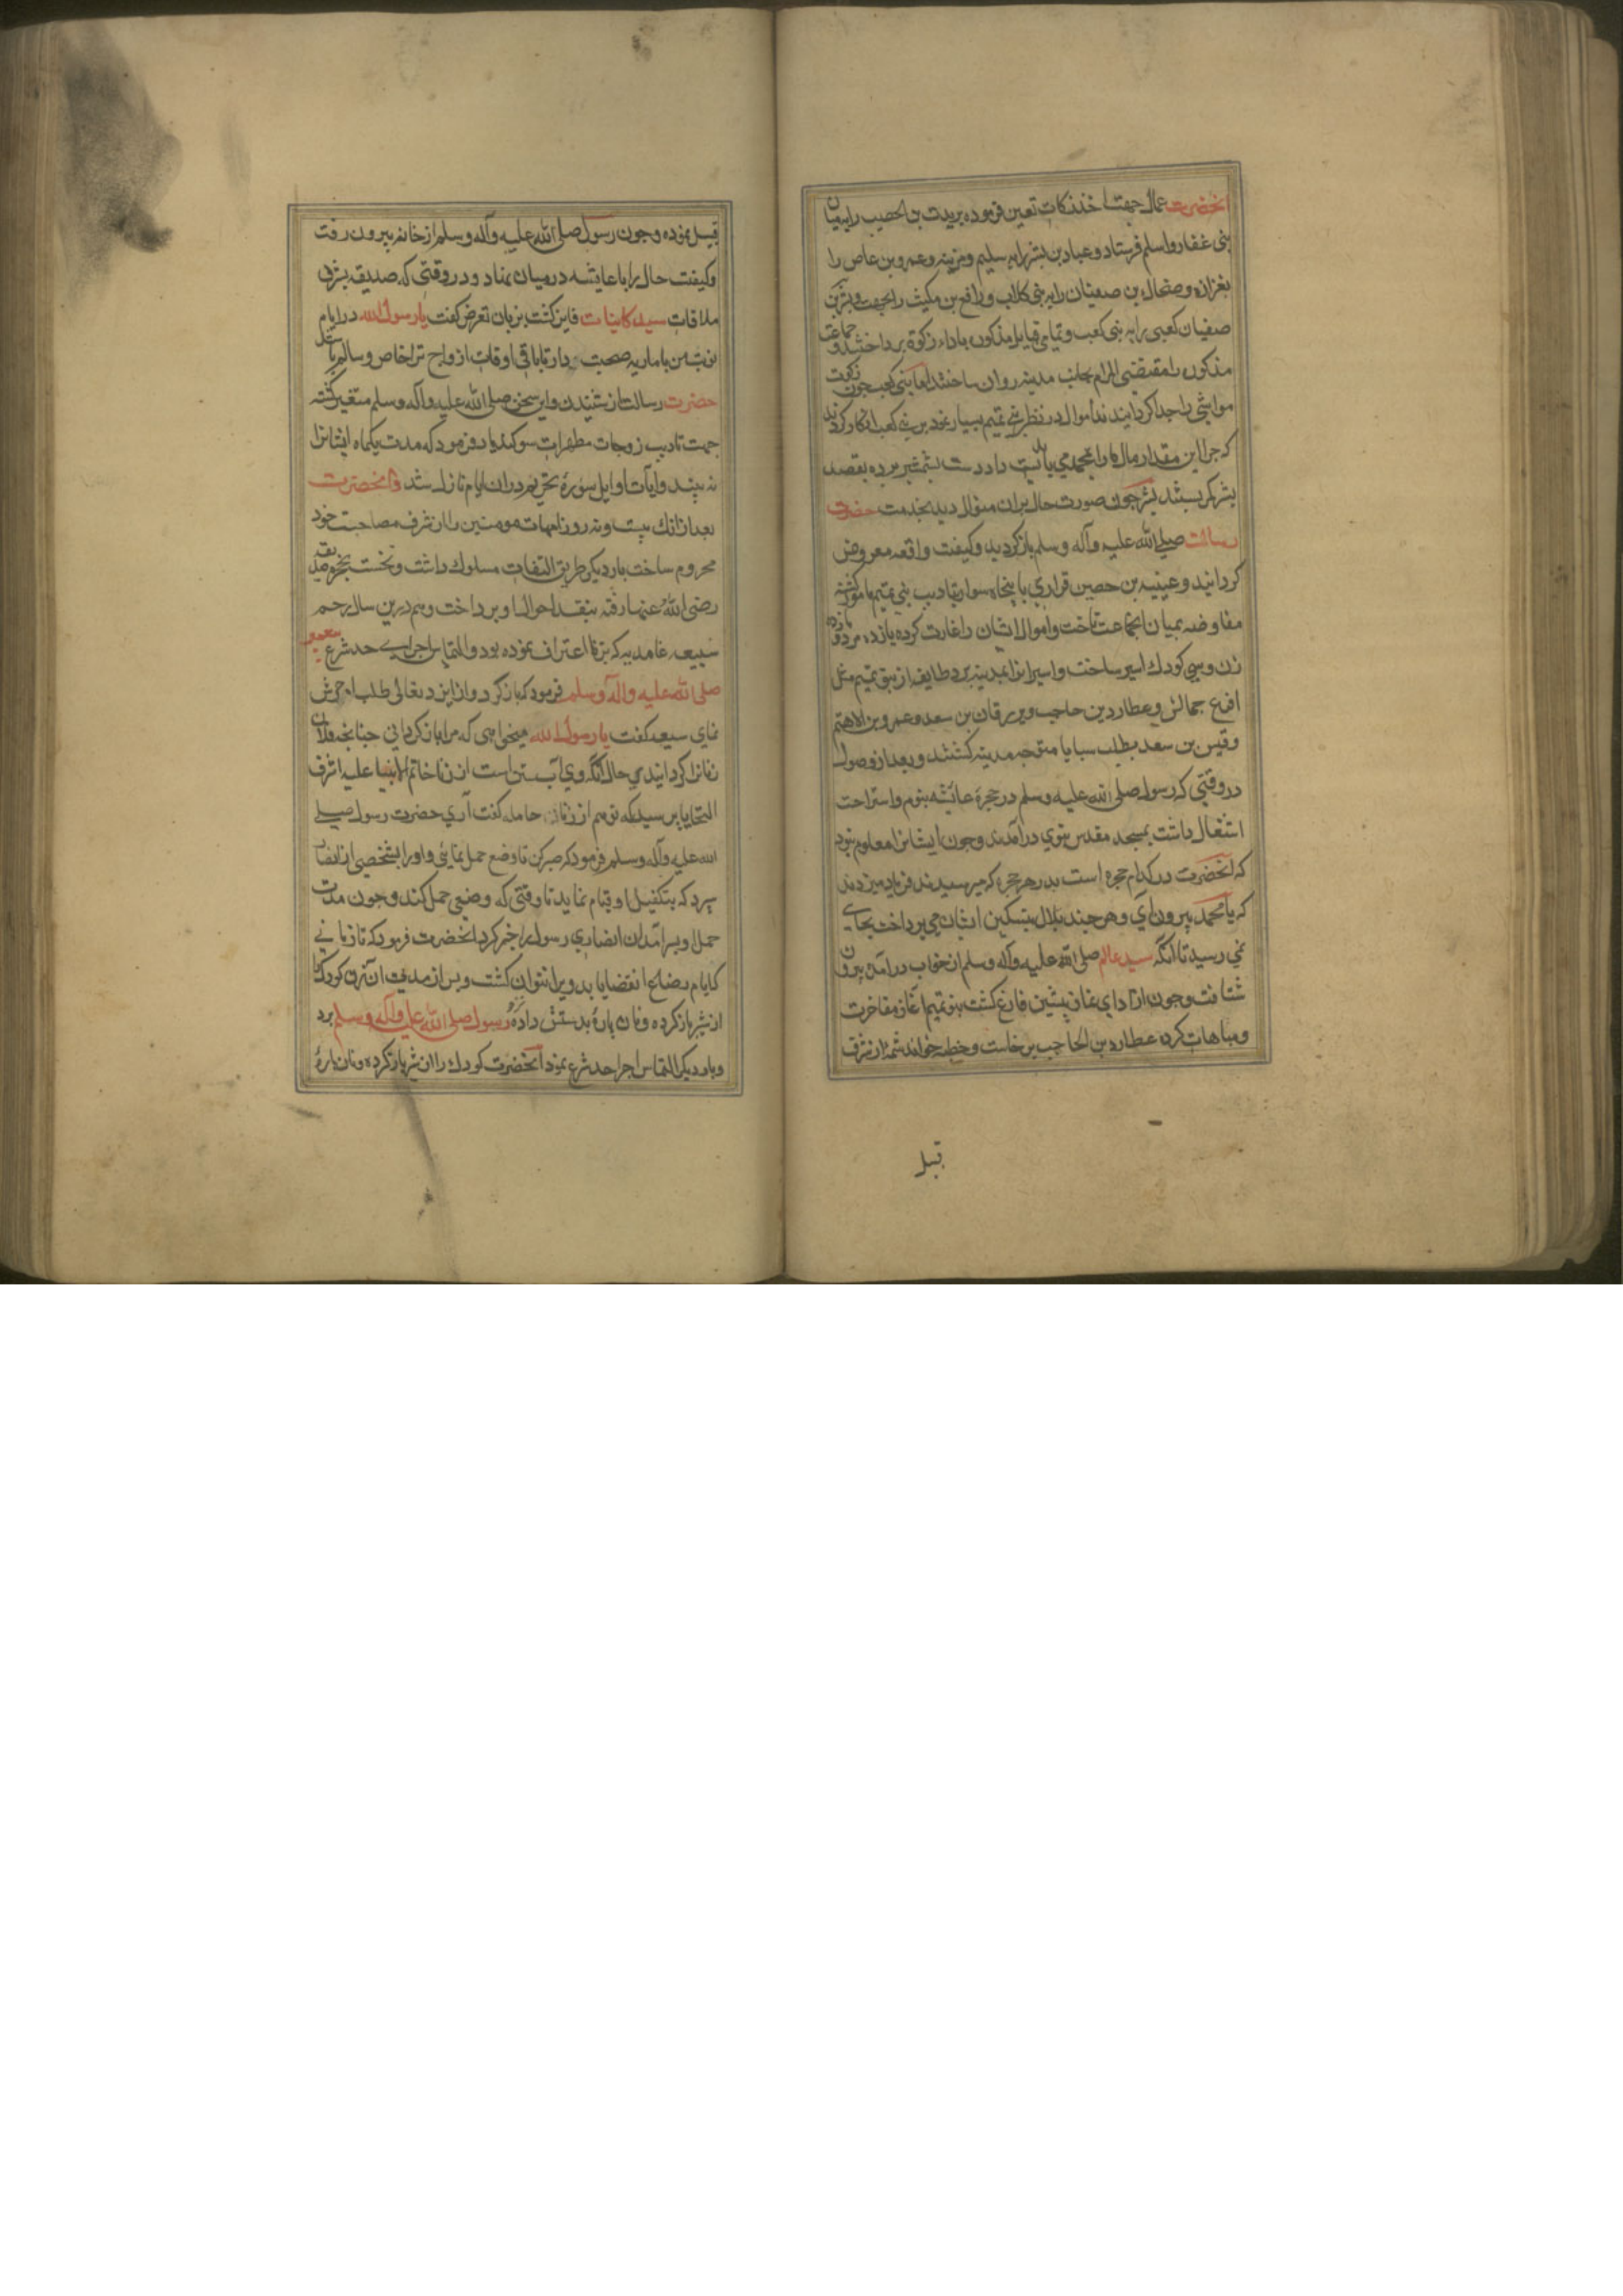 انحضرت عمال جهت اخذ زکات تعین فرموده بریدت بن الحصیب را بمیان
بنی غفار و اسلم فرستاد و عباد بن بشر را به سلیم و مزینه و عمرو بن عاص را
بفزاره و ضحاک بن صفیان را به بنی کلاب و رافع بن مکیث را بجهینه و بشر بن
صفیان کعبی را به بنی کعب و تمامی قبایل مذکور باداء زکوة برداختند و جماعت
مذکور را مقتضی المرام بجانب مدینه روان ساختند اما بنی کعب جون زکوت
مواشی را جدا کردانیدند آموال در نظر بنی تمیم بسیار نمود بر بنی کعب انکار کردند
که جرا این مقدار مال را بمحمد می باید داد دست بشمشیر برده بقصد
بشر کمر بستند بشر جون صورت حال بران منوال دید بخدمت حضرت
رسالت صلی الله علیه وآله وسلم باز کردید و کیفت واقعه معروض
کردانید و عینیه بن حصین فزاری با پنجاه سوار بتادیب بنی تمیم مامور کشته
مفاوضه بمیان انجماعت تاخت و اموال ایشان را غارت کرده یازده مرد و یازده
زن و سی کودک اسیر ساخت و اسیرانرا بمدینه برد طایفه از بنو تمیم مثل
اقرع حابس و عطارد بن حاجب و زبرقان بن سعد و عمرو بن الاهتم
و قیس بن سعد بطلب سبایا متوجه مدینه کشتند و بعد از وصول
در وقتی که رسول صلی الله علیه وسلم در حجرهٔ عائشه بنوم و استراحت
اشتغال داشت بمسجد مقدس نبوی درآمدند و جون ایشانرا معلوم نبود
که انحضرت در کدام حجره است بدر هر حجره که میرسیدند فریاد میزدند
که یا محمد بیرون آی و هر چند بلال بتسکین ایشان می پرداخت بجای
نمی رسید تا انکه سید عالم صلی الله علیه وآله وسلم از خواب درآمده بیرون
شتافت و جون از ادای نماز پیشین فارغ کشت بنو تمیم اغاز مفاخرت
و مباهات کرده عطارد بن الحاجب برخاست و خطبه خواند شمهٔ از شرف
قبیل
قبیل نموده و جون رسول صلی الله علیه وآله وسلم از خانه بیرون رفت
و کیفت حال را با عایشه درمیان نهاد و در وقتی که صدیقه بشرف
ملاقات سید کاینات فایز کشت بزبان تعرض کفت یا رسول الله در ایام
نوبت من با ماریه صحبت دار تا باقی اوقات ازواج ترا خاص و سالم باشد
حضرت رسالت از شنیدن این سخن صلی الله علیه وآله وسلم متغیر کشته
جهت تادیب زوجات مطهرات سوکند یاد فرمود که مدت یکماه ایشانرا
نه بیند و آیات اوایل سورهٔ تحریم دران ایام نازل شد و انحضرت
بعد از انک بیست و نه روز امهات مومنین را از شرف مصاحبت خود
محروم ساخت بار دیکر طریق التفات مسلوک داشت و نخست بحجره صدیقه
رضی الله عنها رفته بتفقد احوال او برداخت و هم درین سال رجم
سبیعه غامدیه که بزنا اعتراف نموده بود و التماس اجرای حد شرع پیغمبر
صلی الله علیه وآله وسلم فرمود که باز کرد و از ایزد تعالی طلب امرزش
نمای سبیعه کفت یا رسول الله میخواهی که مرا باز کردانی جنانجه فلان
زنانرا کردانیدی حال آنکه وی آبستن است از زنا خاتم الانبیا علیه اشرف
التحایا برسید که تو هم از زنا حامله کفت آری حضرت رسول صلی
الله علیه وآله وسلم فرمود که صبر کن تا وضع حمل نمایی و او را بشخصی از انصار
سپرد که بتکفیل او قیام نماید تا وقتی که وضع حمل کند و جون مدت
حمل او بسر آمد ان انصاری رسول را خبر کرد انحضرت فرمود که تا زمانی
که ایام رضاع انقضا یابد ویرا نتوان کشت و پس از مدتی ان زن کودک را
از شیر باز کرده و نان پارهٔ بدستش داده رسول صلی الله علیه وآله وسلم برد
و بار دیکر التماس اجرا حد شرع نمود انحضرت کودک را از شیر باز کرده و نان بارهٔ